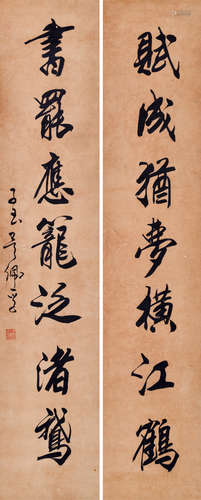 賦成猶夢橫江鶴
書罷應籠泛渚鵝
子玉吳佩孚